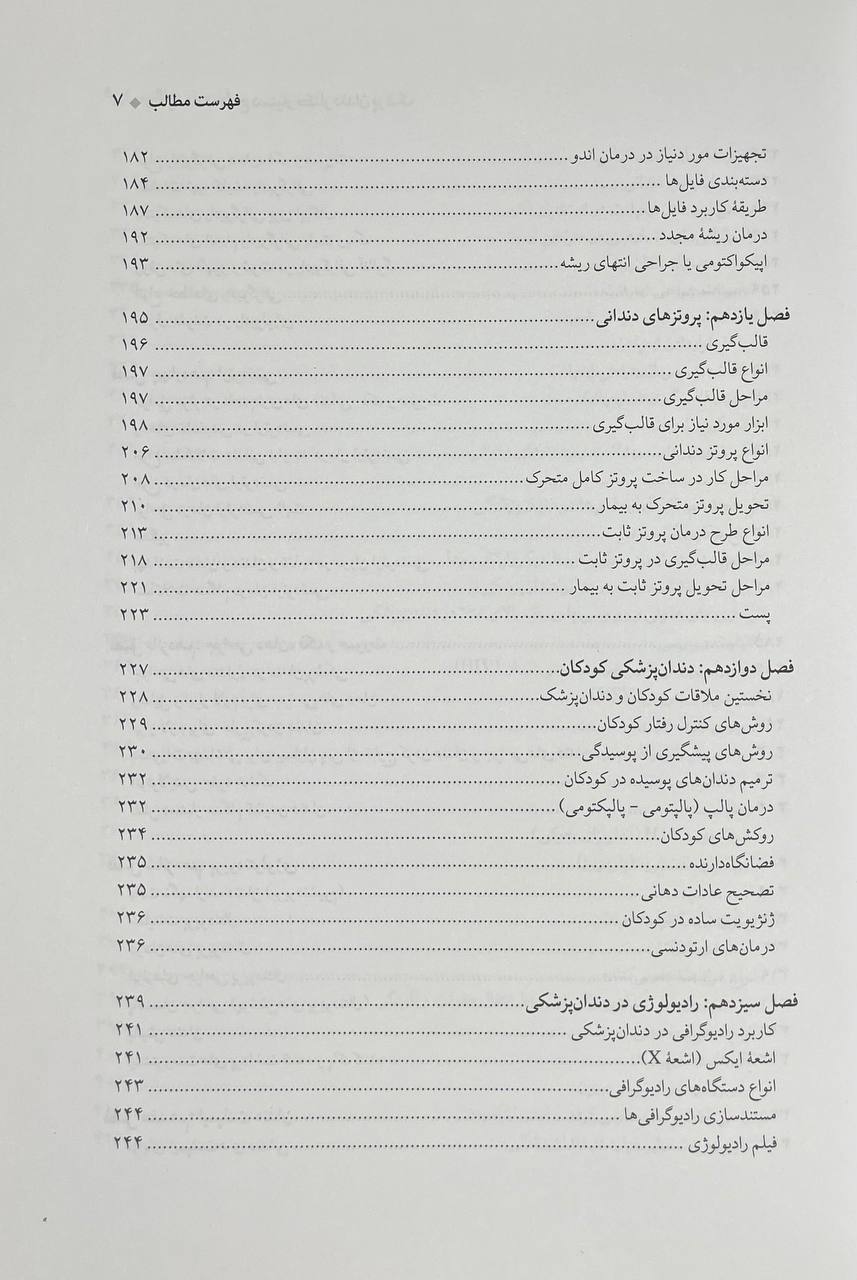 فهرست مطالب ◆ ۷
تجهیزات مور دنیاز در درمان اندو ... ۱۸۲
دسته‌بندی فایل‌ها ... ۱۸۴
طریقهٔ کاربرد فایل‌ها ... ۱۸۷
درمان ریشهٔ مجدد ... ۱۹۲
اپیکواکتومی یا جراحی انتهای ریشه ... ۱۹۳
فصل یازدهم: پروتزهای دندانی ... ۱۹۵
قالب‌گیری ... ۱۹۶
انواع قالب‌گیری ... ۱۹۷
مراحل قالب‌گیری ... ۱۹۷
ابزار مورد نیاز برای قالب‌گیری ... ۱۹۸
انواع پروتز دندانی ... ۲۰۶
مراحل کار در ساخت پروتز کامل متحرک ... ۲۰۸
تحویل پروتز متحرک به بیمار ... ۲۱۰
انواع طرح درمان پروتز ثابت ... ۲۱۳
مراحل قالب‌گیری در پروتز ثابت ... ۲۱۸
مراحل تحویل پروتز ثابت به بیمار ... ۲۲۱
پست ... ۲۲۳
فصل دوازدهم: دندان‌پزشکی کودکان ... ۲۲۷
نخستین ملاقات کودکان و دندان‌پزشک ... ۲۲۸
روش‌های کنترل رفتار کودکان ... ۲۲۹
روش‌های پیشگیری از پوسیدگی ... ۲۳۰
ترمیم دندان‌های پوسیده در کودکان ... ۲۳۲
درمان پالپ (پالپتومی - پالپکتومی) ... ۲۳۲
روکش‌های کودکان ... ۲۳۴
فضانگاه‌دارنده ... ۲۳۵
تصحیح عادات دهانی ... ۲۳۵
ژنژیویت ساده در کودکان ... ۲۳۶
درمان‌های ارتودنسی ... ۲۳۶
فصل سیزدهم: رادیولوژی در دندان‌پزشکی ... ۲۳۹
کاربرد رادیوگرافی در دندان‌پزشکی ... ۲۴۱
اشعهٔ ایکس (اشعهٔ X) ... ۲۴۱
انواع دستگاه‌های رادیوگرافی ... ۲۴۳
مستندسازی رادیوگرافی‌ها ... ۲۴۴
فیلم رادیولوژی ... ۲۴۴